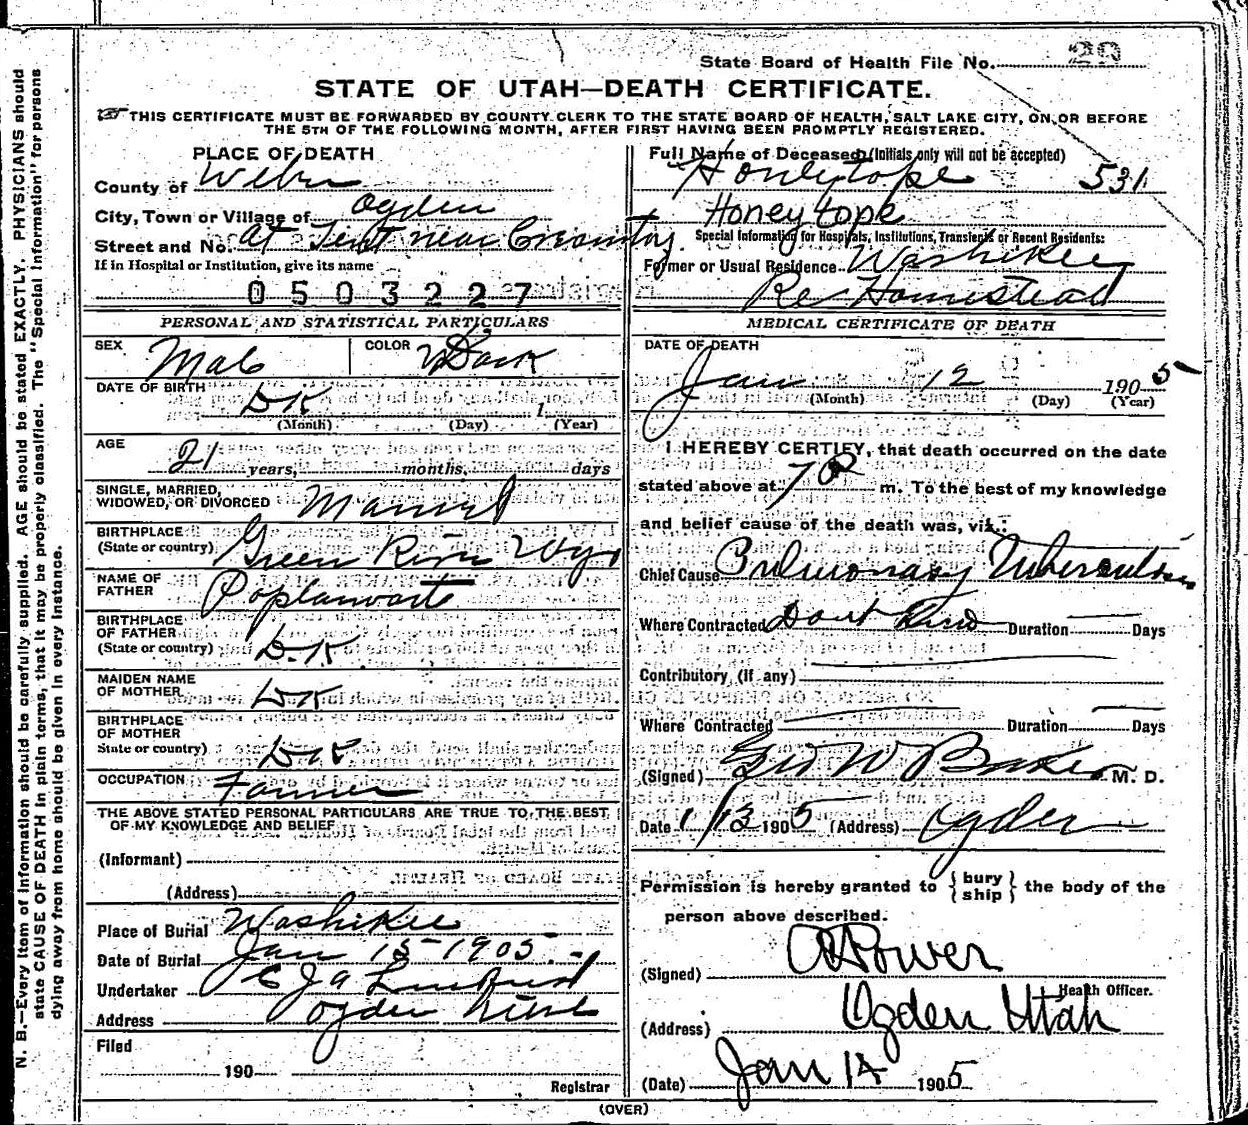 State Board of Health File No. 20
STATE OF UTAH—DEATH CERTIFICATE.
THIS CERTIFICATE MUST BE FORWARDED BY COUNTY CLERK TO THE STATE BOARD OF HEALTH, SALT LAKE CITY, ON OR BEFORE
THE 5TH OF THE FOLLOWING MONTH, AFTER FIRST HAVING BEEN PROMPTLY REGISTERED.
PLACE OF DEATH
County of Weber
City, Town or Village of Ogden
Street and No. At Tent near
If in Hospital or Institution, give its name
0503227
PERSONAL AND STATISTICAL PARTICULARS
SEX Male COLOR Dark
DATE OF BIRTH DK 1
(Month) (Day) (Year)
AGE 21 years, months, days
SINGLE, MARRIED,
WIDOWED, OR DIVORCED Married
BIRTHPLACE
(State or country) Green River Wyo
NAME OF
FATHER
BIRTHPLACE
OF FATHER
(State or country) D.K
MAIDEN NAME
OF MOTHER DK
BIRTHPLACE
OF MOTHER
State or country) DK
OCCUPATION Farmer
THE ABOVE STATED PERSONAL PARTICULARS ARE TRUE TO THE BEST
OF MY KNOWLEDGE AND BELIEF
(Informant)
(Address)
Place of Burial Washikee
Date of Burial Jan 15 1905.
Undertaker
Address Ogden Utah
Filed
190
Registrar
Full Name of Deceased (Initials only will not be accepted)
Honeytope 531
Honeytope
Special Information for Hospitals, Institutions, Transients or Recent Residents:
Former or Usual Residence Washikee
Homestead
MEDICAL CERTIFICATE OF DEATH
DATE OF DEATH
Jan 12 1905
(Month) (Day) (Year)
I HEREBY CERTIFY, that death occurred on the date
stated above at 7 P m. To the best of my knowledge
and belief cause of the death was, viz.:
Chief Cause Pulmonary Tuberculosis
Where Contracted Dont Duration Days
Contributory (if any)
Where Contracted Duration Days
(Signed) Geo W Baker M. D.
Date 1/13 1905 (Address) Ogden
Permission is hereby granted to { bury ship } the body of the
person above described.
(Signed) Power
Health Officer.
(Address) Ogden Utah
(Date) Jan 14 1905
(OVER)
N. B.—Every item of information should be carefully supplied. AGE should be stated EXACTLY. PHYSICIANS should
state CAUSE OF DEATH in plain terms, that it may be properly classified. The "Special Information" for persons
dying away from home should be given in every instance.